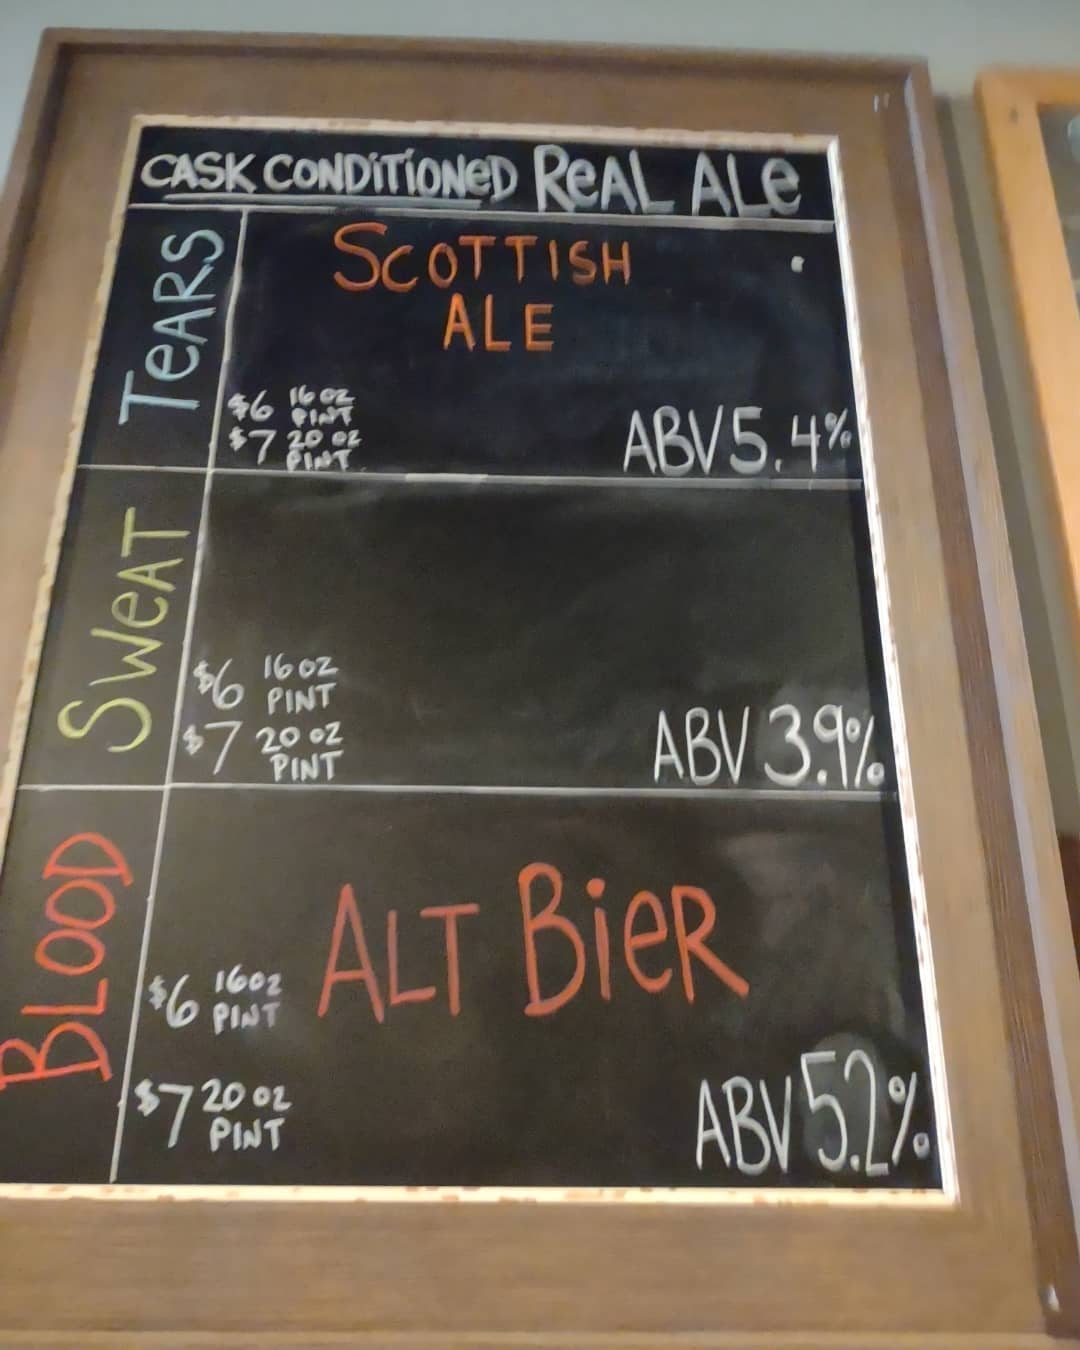 CASK CONDITIONED REAL ALE
TEARS
SCOTTISH
ALE
$6 16 OZ
PINT
$7 20 OZ
PINT
ABV 5.4%
SWEAT
$6 16 OZ
PINT
$7 20 OZ
PINT
ABV 3.9%
BLOOD
ALT BiER
$6 16 OZ
PINT
$7 20 OZ
PINT
ABV 5.2%